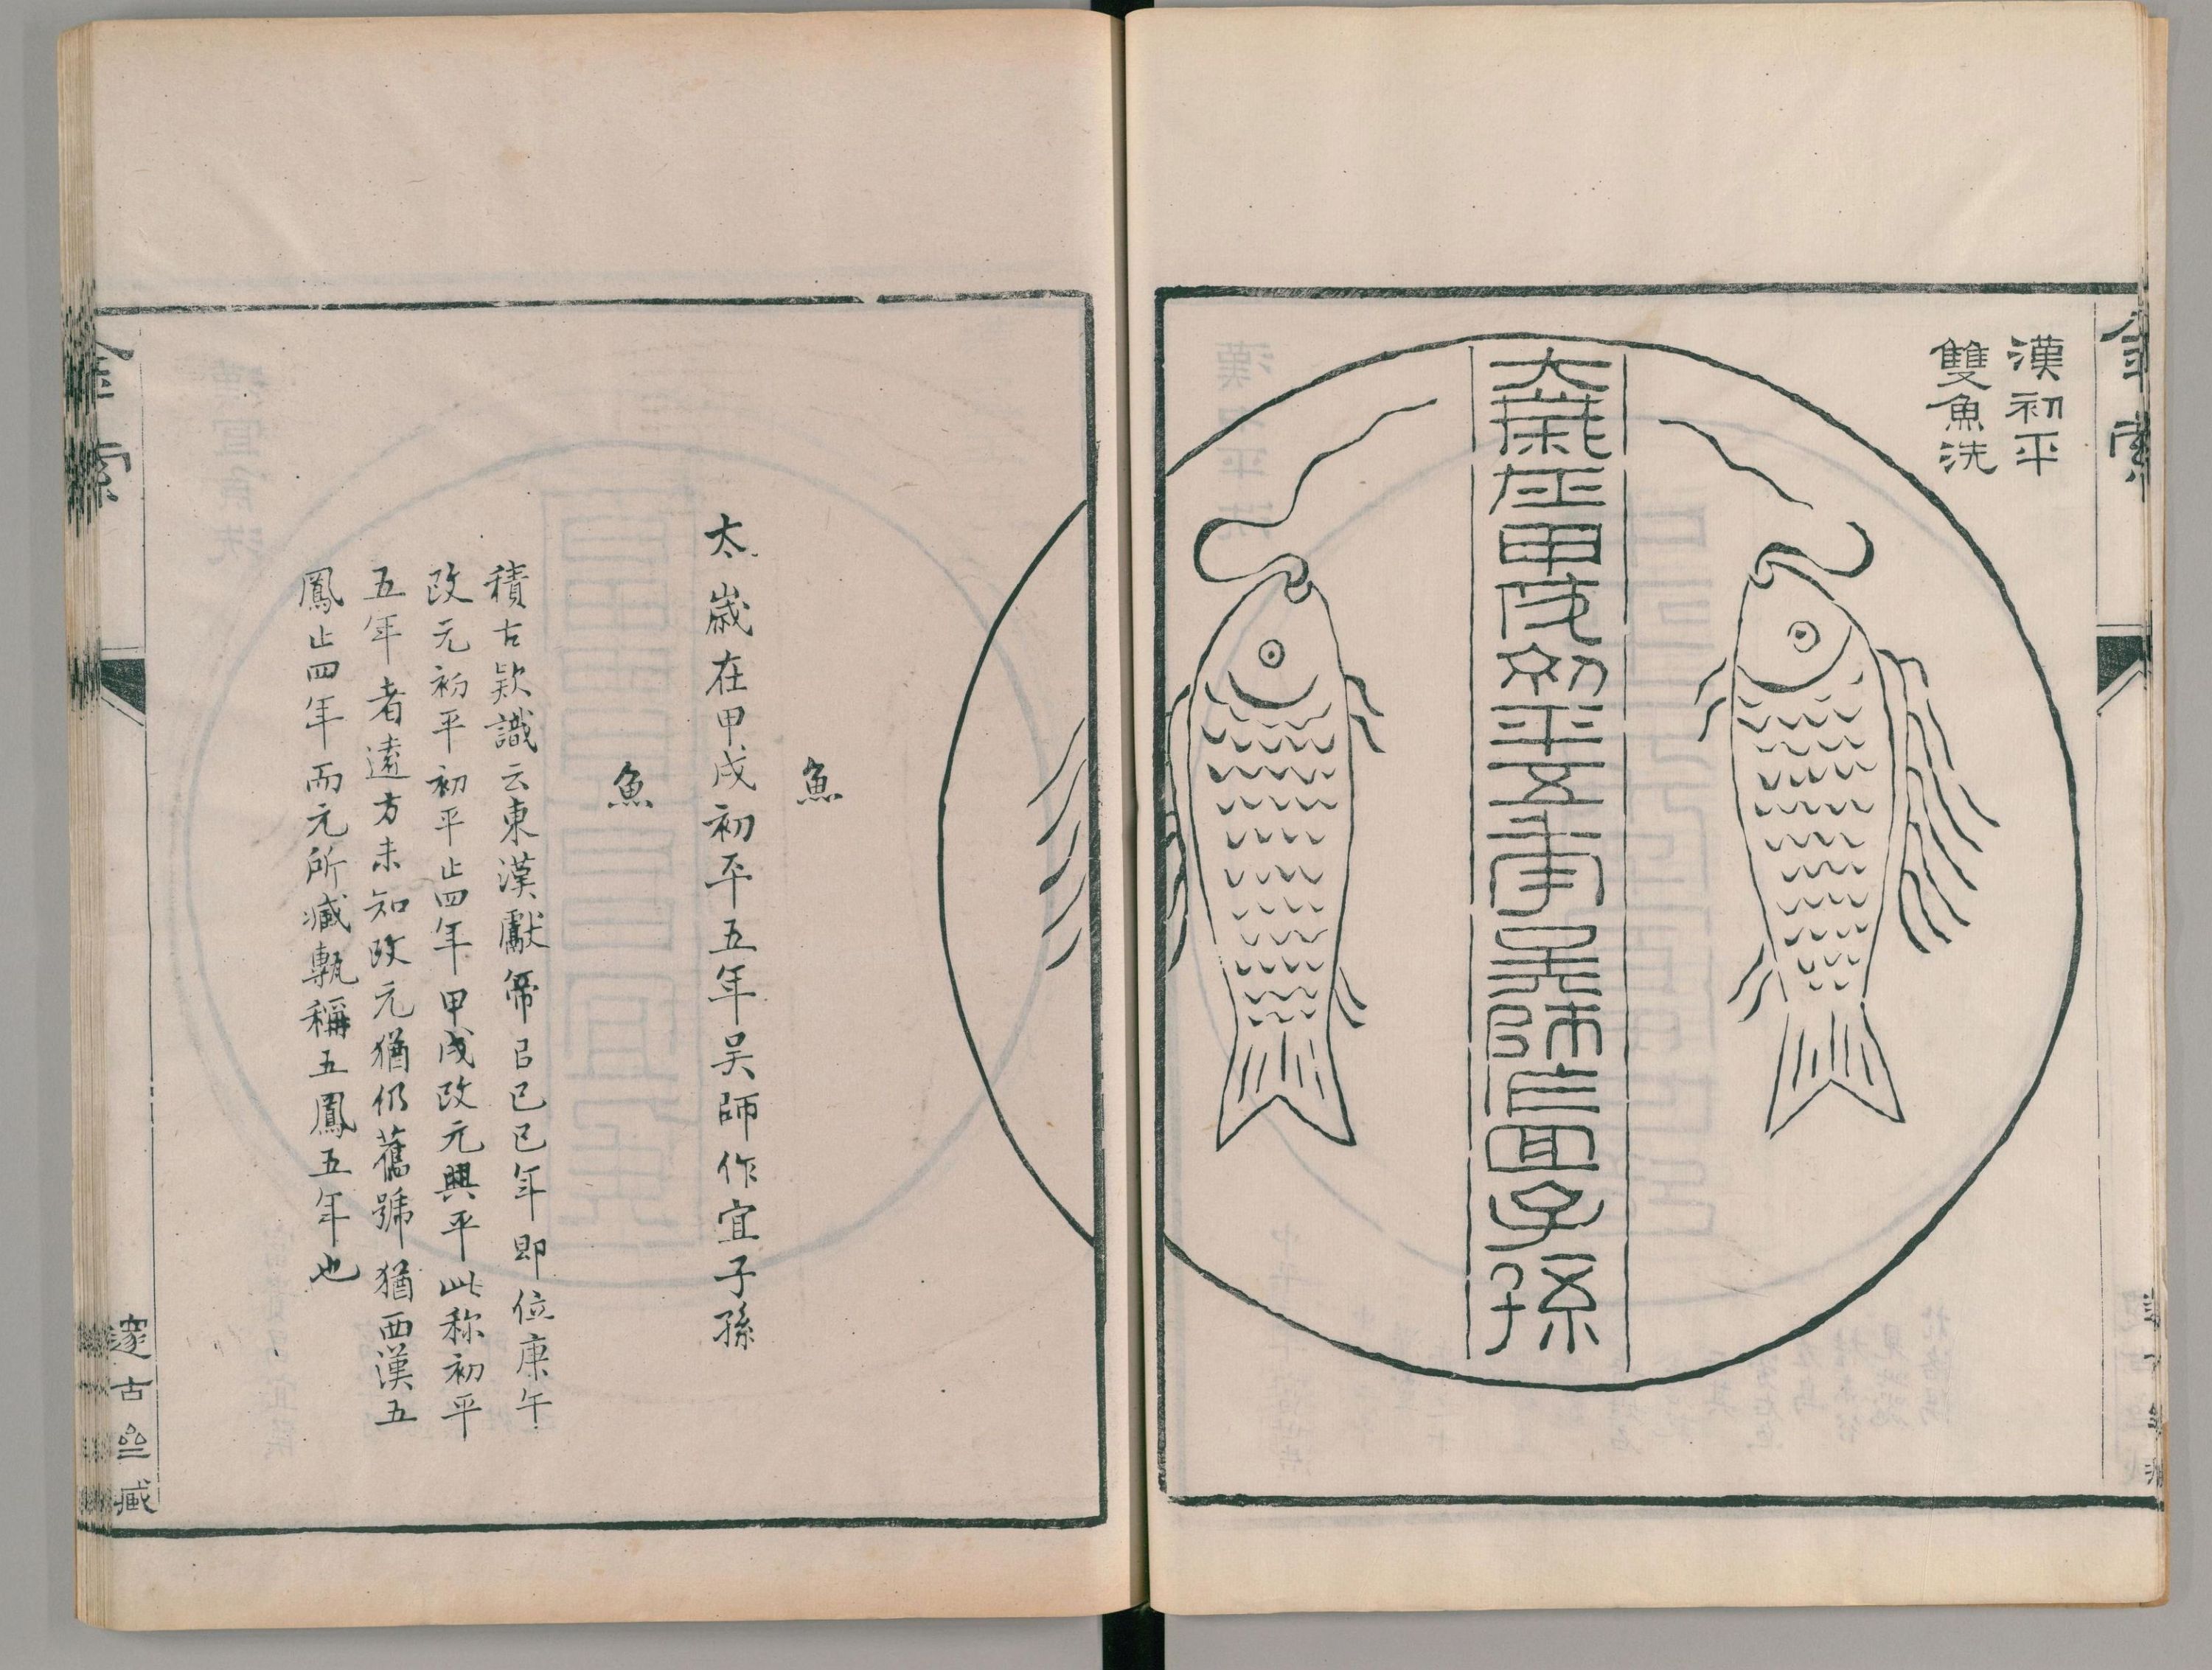 漢初平
雙魚洗
太歲在甲戌初平五年吳師作宜子孫
魚
太歲在甲戌初平五年吳師作宜子孫
魚
積古款識云東漢獻帝以己巳年即位庚午
改元初平初平止四年甲戌改元興平此称初平
五年者遠方未知改元猶仍舊號猶西漢五
鳳止四年而元所臧甎稱五鳳五年也
金索
邃古齋臧